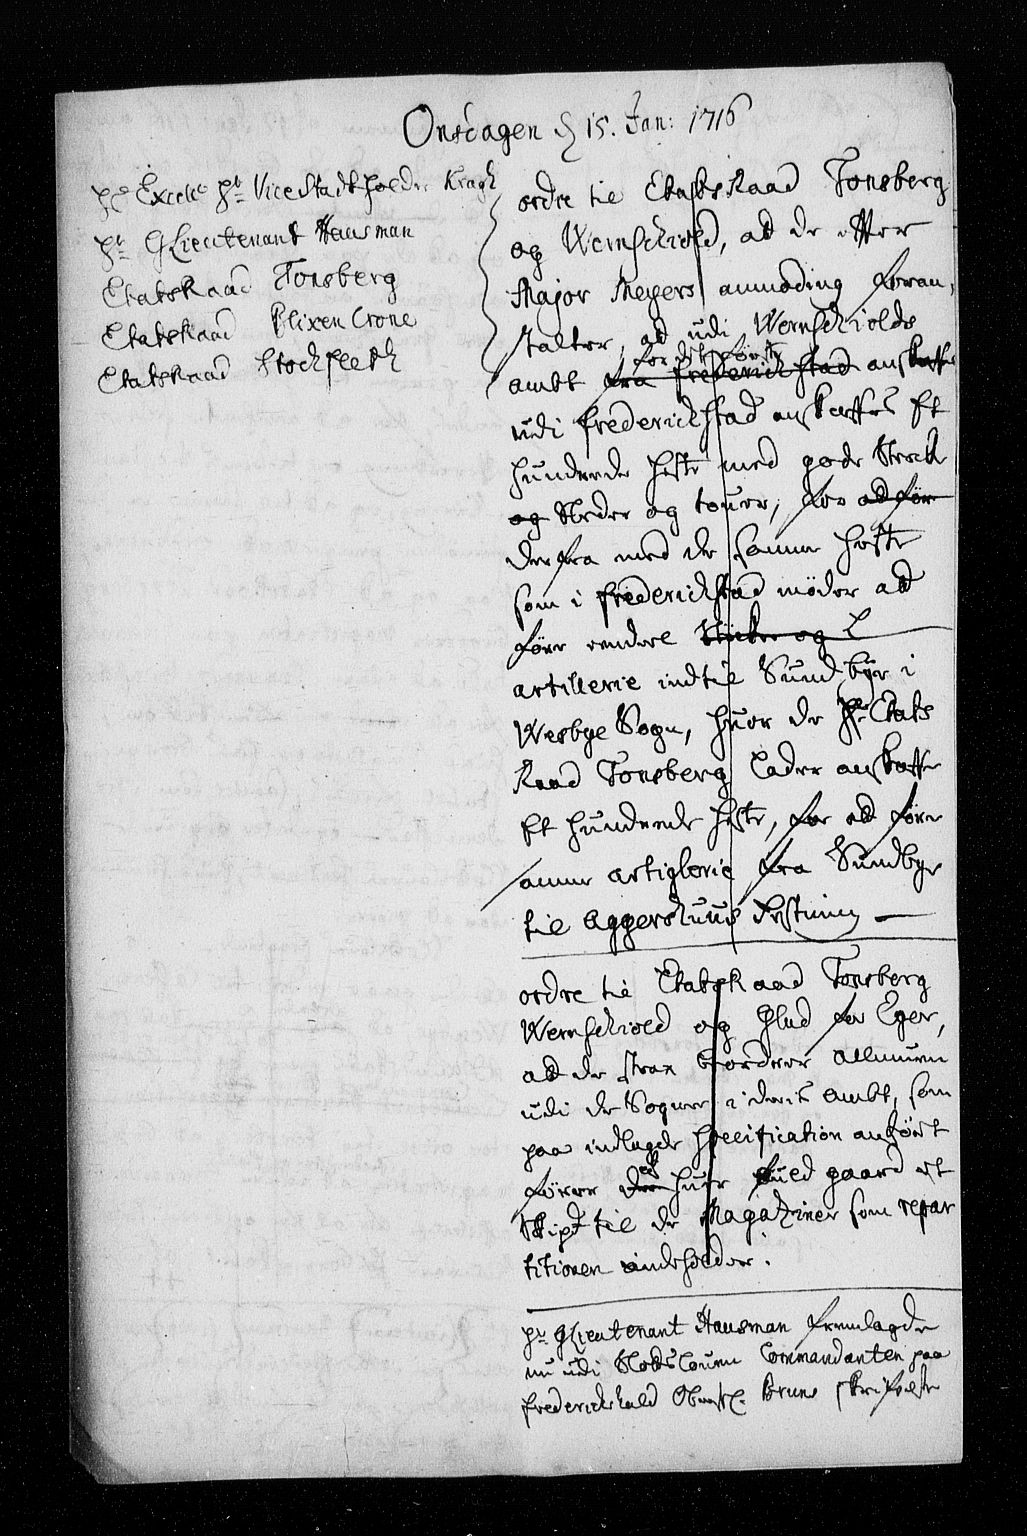 Onsdagen d 15. Jan: 1716
Hs Excell: Hr Vice Stadtholder Kragh
Hr GLieutenant Hausman
Etatsraad Tonsberg
Etatsraad Blixencrone
Etatsraad Stockfleth
ordre til EtatsRaad Tonsberg
og Wernschiold, at de efter
Major Meyers anmoding foran,
stalter, at udi Wernschiolds
for det første
ambt fra Frederichstad anskaffes
udi Frederichstad anskaffes Et
hundrede heste med gode
og Sleder og touer, for at før
der fra med de samme heste
som i Frederichstad møder at
føre endeel Stücker og
artillerie indtil Sundbye i
Wesbye Sogn, huor de Hr Etats
Raad Tonsberg lader anskaffe
Et hundrede heste, for at føre
samme artiglerie fra Sundbye
til Aggershuus Festning
ordre til Etatsraad Tonsberg
Wernschiold og Glud for Eger,
at de strax beordrer Allmuen
udi de Sogner i deris ambt, som
paa indlagde Specification anført
at
fører der huer fuld gaard et
Skip℔ til de Magaziner som repar
titionen indeholder.
Hr GLieutenant Hausman fremlagde
nu udi Slotsloven Commandanten paa
Frederichshald Obristl. Bruns skrifvelse